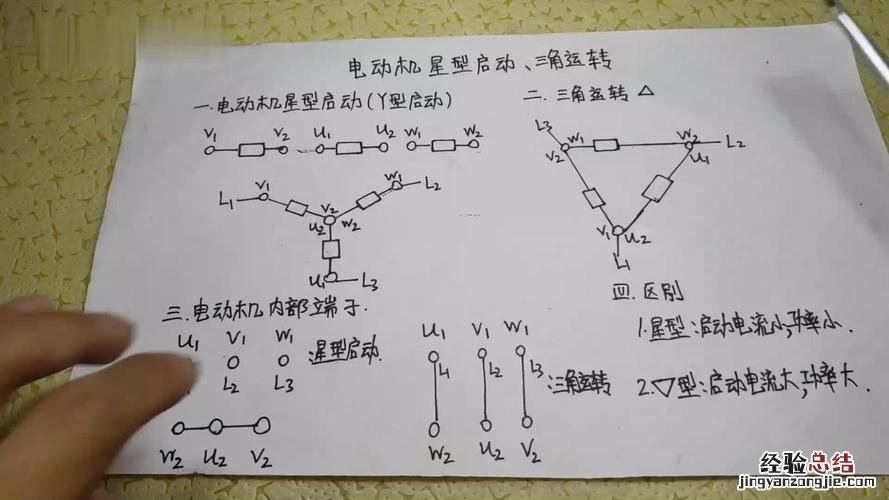 电动机星型启动、三角运转
一.电动机星型启动(Y型启动)
V1 V2 U1 U2 W1 W2
L1 V1 V2 U2 W2 W1 L2
U1 L3
二.三角运转△
L3 W1 V2 W2 U1 L2
V1 U2
L1
三.电动机内部端子.
U1 V1 W1 :星型启动
L2 L3
W2 U2 V2
U1 V1 W1
L1 L2 L3 :三角运转
W2 U2 V2
四.区别
1.星型:启动电流小,功率小.
2.▽型:启动电流大,功率大.
经验总结
jingyanzongjie.com